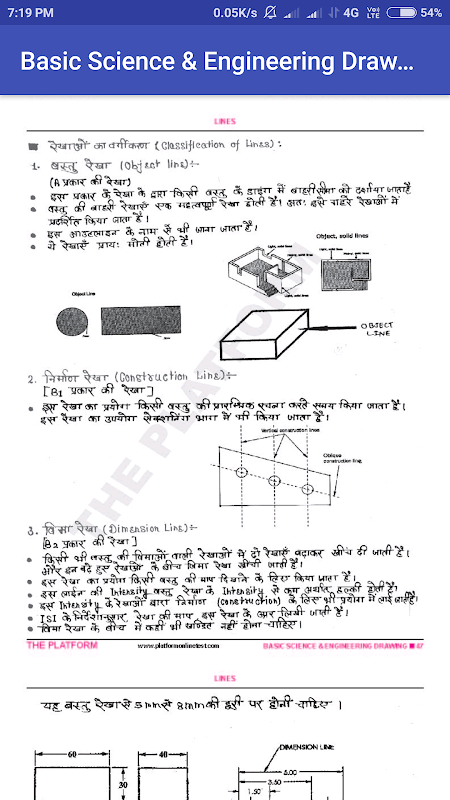 7:19 PM
0.05K/s
4G
VoLTE
54%
Basic Science & Engineering Draw...
LINES
रेखाओं का वर्गीकरण (Classification of Lines) :
1. वस्तु रेखा (Object line):-
(A प्रकार की रेखा)
इस प्रकार के रेखा के द्वारा किसी वस्तु के ड्राइंग में बाहरी सीमा को दर्शाया जाता है
वस्तु की बाहरी रेखाएँ एक महत्वपूर्ण रेखा होती है। अतः इसे गहरे रेखाओं में
प्रदर्शित किया जाता है।
इस आउटलाइन के नाम से भी जाना जाता है।
ये रेखाएँ प्रायः मोटी होती है।
Object, solid lines
Object Line
OBJECT
LINE
2. निर्माण रेखा (Construction Line):-
[B1 प्रकार की रेखा]
इस रेखा का प्रयोग किसी वस्तु की प्रारम्भिक रचना करते समय किया जाता है।
इस रेखा का उपयोग सेक्शनिंग भाग में भी किया जाता है।
Vertical construction lines
Oblique
construction line
3. विमा रेखा (Dimension Line):-
[B2 प्रकार की रेखा]
किसी भी वस्तु की विमाओं वाली रेखाओं में दो रेखाएँ बढ़ाकर खींच दी जाती है।
और इन बढ़े हुए रेखाओं के बीच विमा रेखा खींची जाती है।
इस रेखा का प्रयोग किसी वस्तु की माप दिखाने के लिए किया जाता है।
इस लाईन की Intensity वस्तु रेखा के Intensity से कम अर्थात् हल्की होती है।
इस Intensity के रेखाओं द्वारा निर्माण (construction) के लिए भी प्रयोग में लाई जाती है।
ISI के निर्देशानुसार, रेखा की माप, इस रेखा के ऊपर लिखी जाती है।
विमा रेखा के बीच में कहीं भी खण्डित नहीं होना चाहिए।
THE PLATFORM
www.platformonlinetest.com
BASIC SCIENCE & ENGINEERING DRAWING ■ 47
LINES
यह वस्तु रेखा से 5mm से 8mm की दूरी पर होनी चाहिए।
60
40
30
DIMENSION LINE
5.00
3.50
1.50